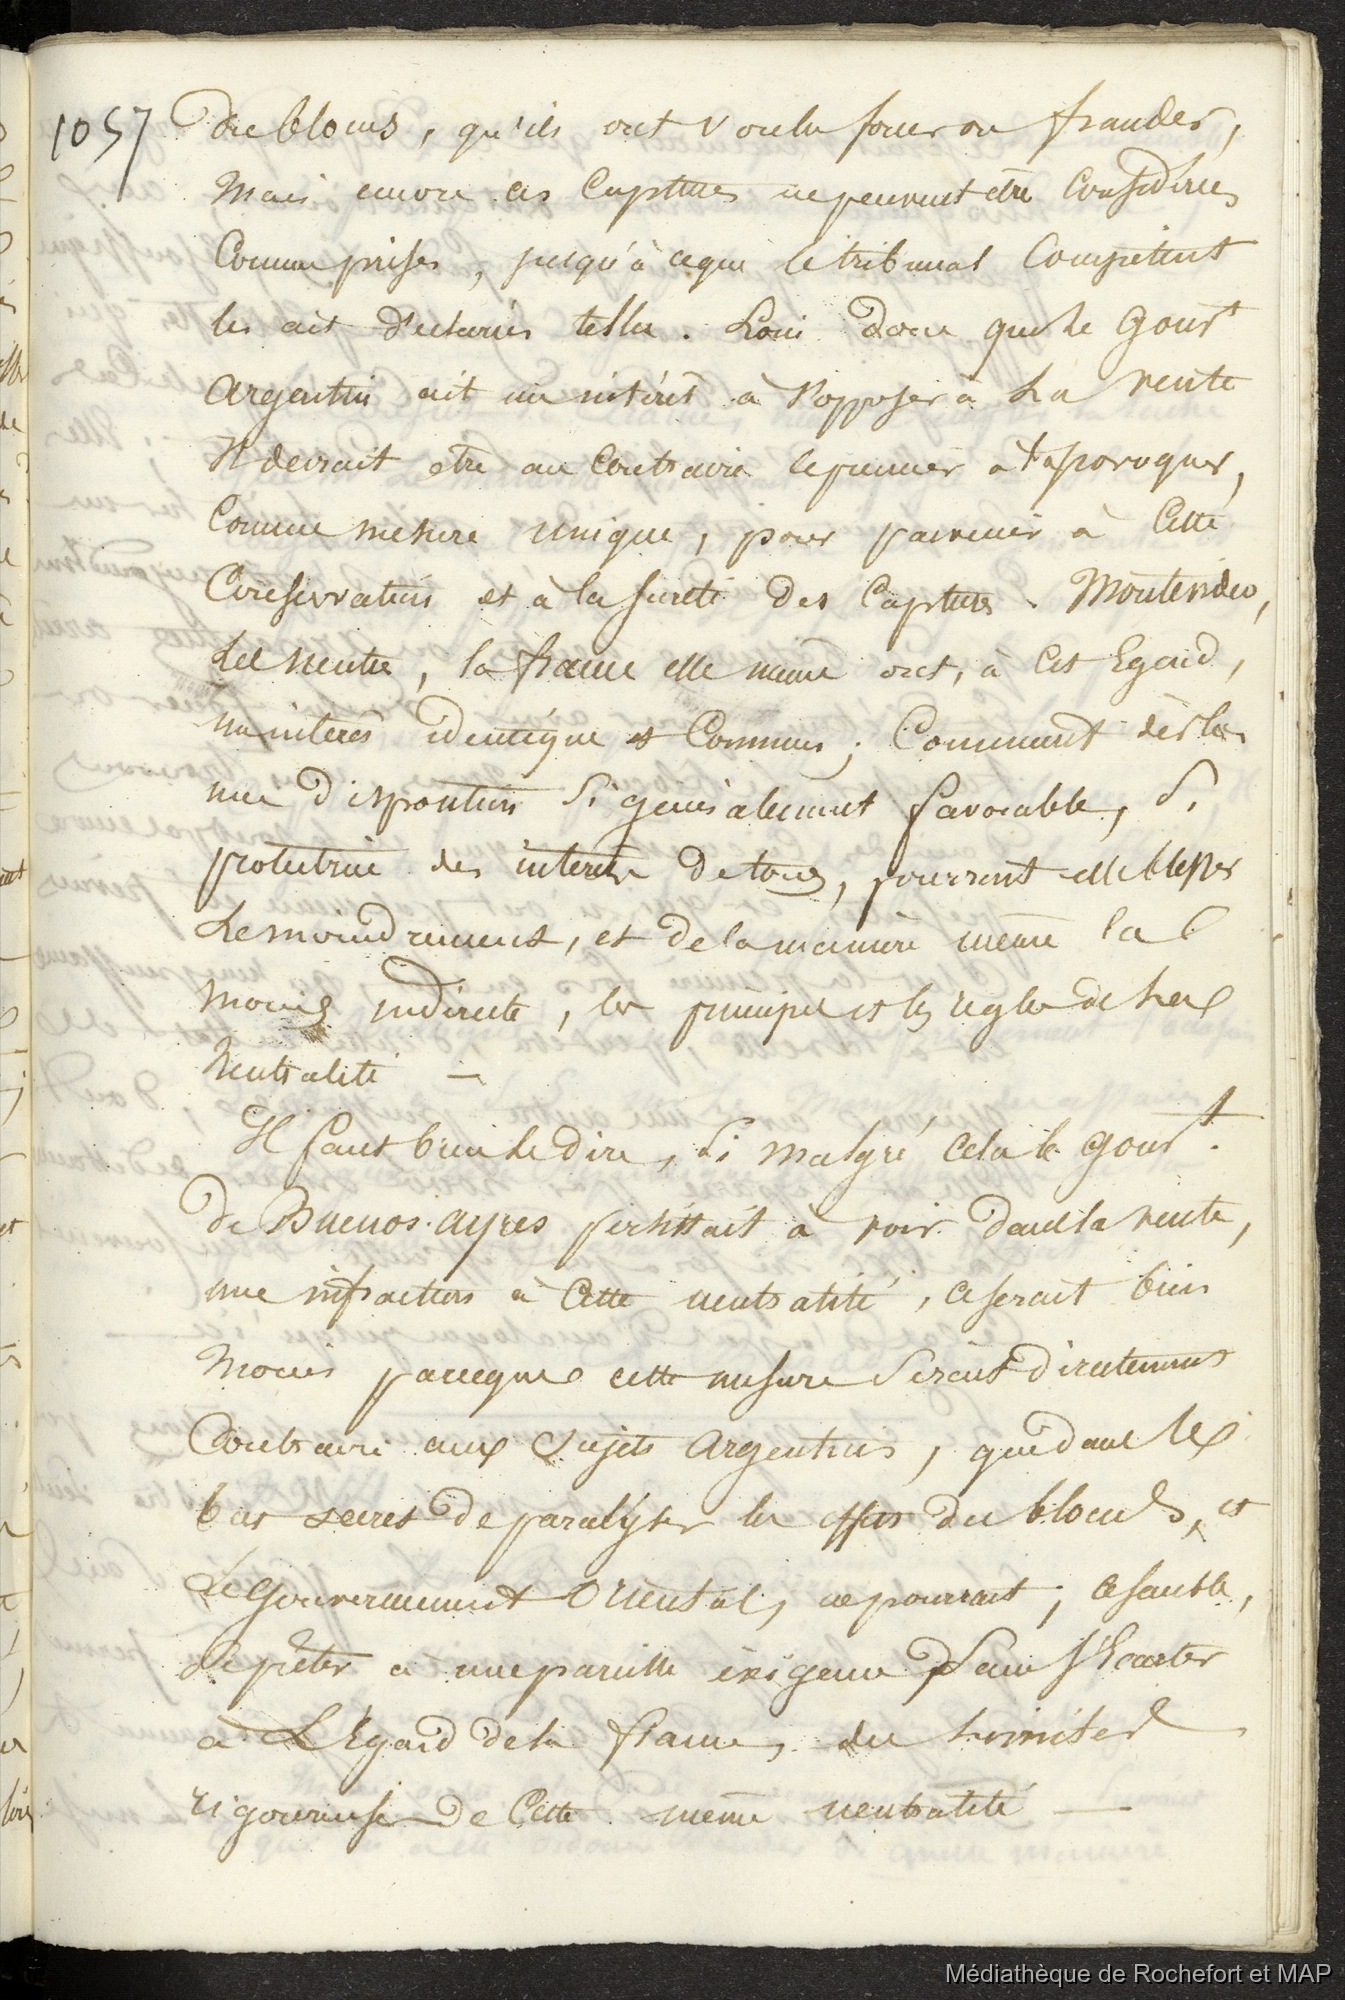 1057
du blocus, qu'ils ont voulu forcer ou frauder,
Mais encore ces Captures ne peuvent être Considérées
Comme prises, jusqu'à ce que le tribunal Compétent
les ait déclarées telles. Loin donc que le Gouvt
argentin ait un intérêt à s'opposer à la vente
Il devrait être au Contraire le premier à la provoquer,
Comme mesure unique, pour parvenir à Cette
Conservation et à la sureté des Captures. Montevideo,
Lui neutre, la france elle même ont, à cet Egard,
un intérêt identique et Commun; Comment dès lors
une disposition si généralement favorable, si
protectrice des intérêts de tous, pourrait elle blesser
le moindrement, et de la manière même la
moins indirecte, les principes et les règles de la
Neutralité —
Il faut bien le dire, si malgré cela le Gouvt.
de Buenos-ayres persistait à voir dans la vente,
une infraction à Cette neutralité, ce serait bien
moins parceque cette mesure serait directement
Contraire aux sujets argentins, que dans le
but secret de paralyser les effets du blocus, et
le Gouvernement Oriental, ne pourrait, ce semble,
se prêter à une pareille exigence sans s'Ecarter
à L'Egard de la france, des limites
rigoureuses de Cette même neutralité —
Médiathèque de Rochefort et MAP